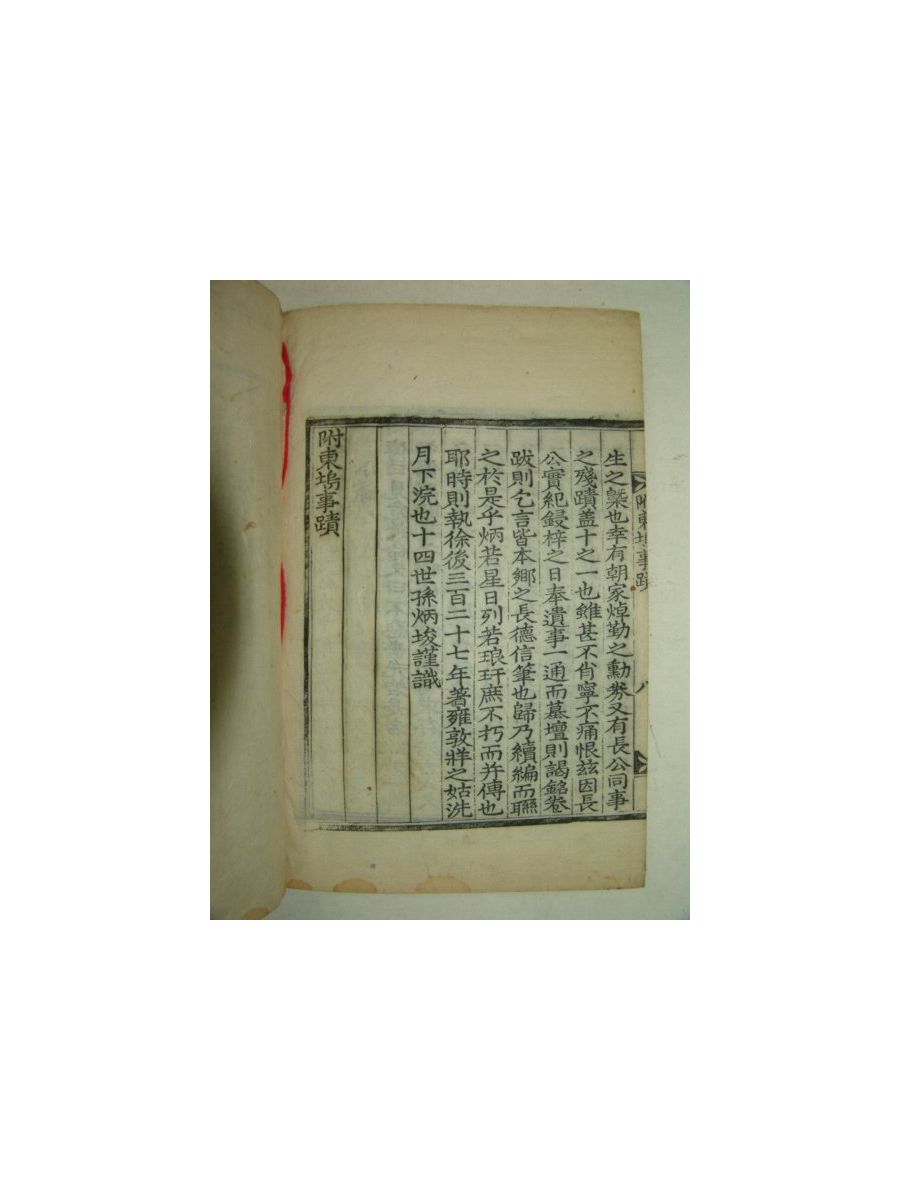 附東塢事蹟
八
生之槩也幸有朝家焯勤之勳券又有長公同事
之殘蹟盖十之一也雖甚不肖寧不痛恨玆因長
公實紀鋟梓之日奉遺事一通而墓壇則謁銘卷
跋則乞言皆本鄕之長德信筆也歸乃續編而聯
之於是乎炳若星日列若琅玕庶不朽而幷傳也
耶時則執徐後三百二十七年著雍敦牂之姑洗
月下浣也十四世孫炳埈謹識
附東塢事蹟